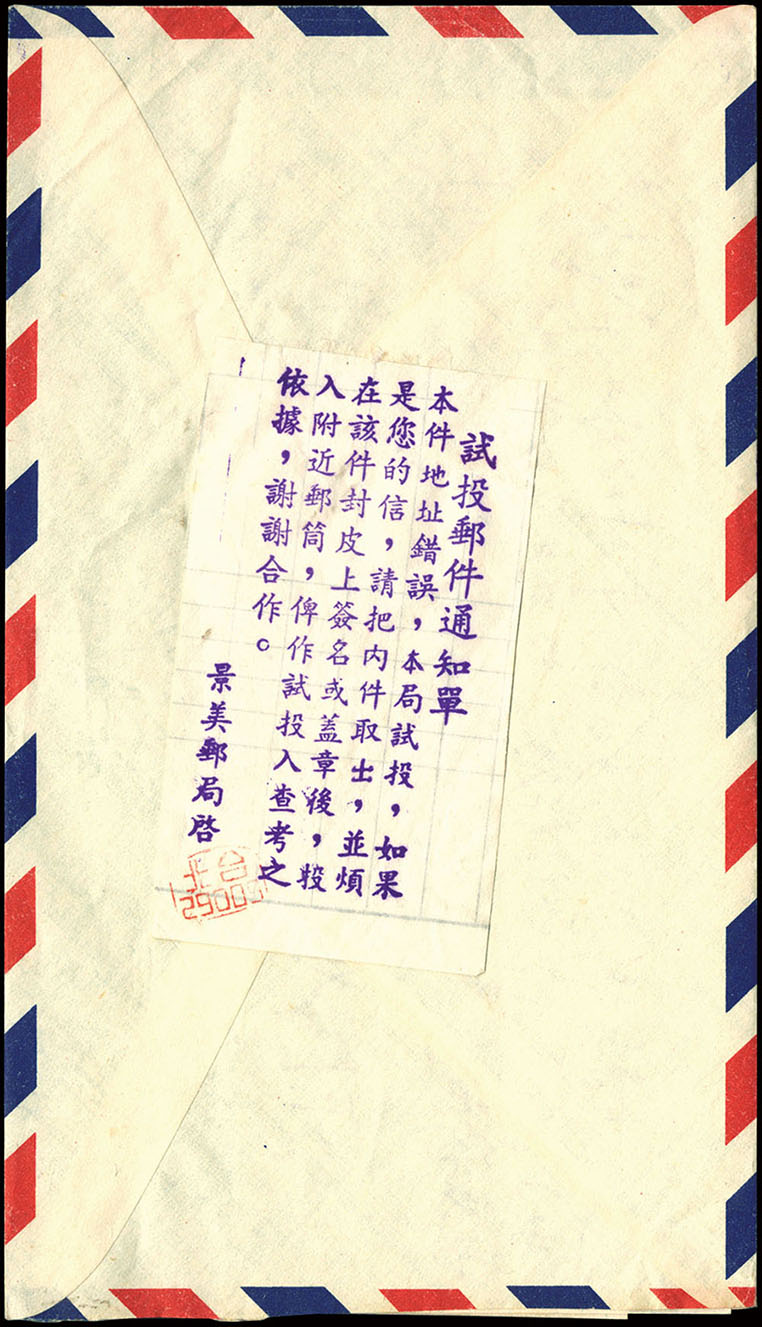 試投郵件通知單
本件地址錯誤，本局試投，如果
是您的信，請把內件取出，並煩
在該件封皮上簽名或蓋章後，投
入附近郵筒，俾作試投入查考之
依據，謝謝合作。
景美郵局啓
台北